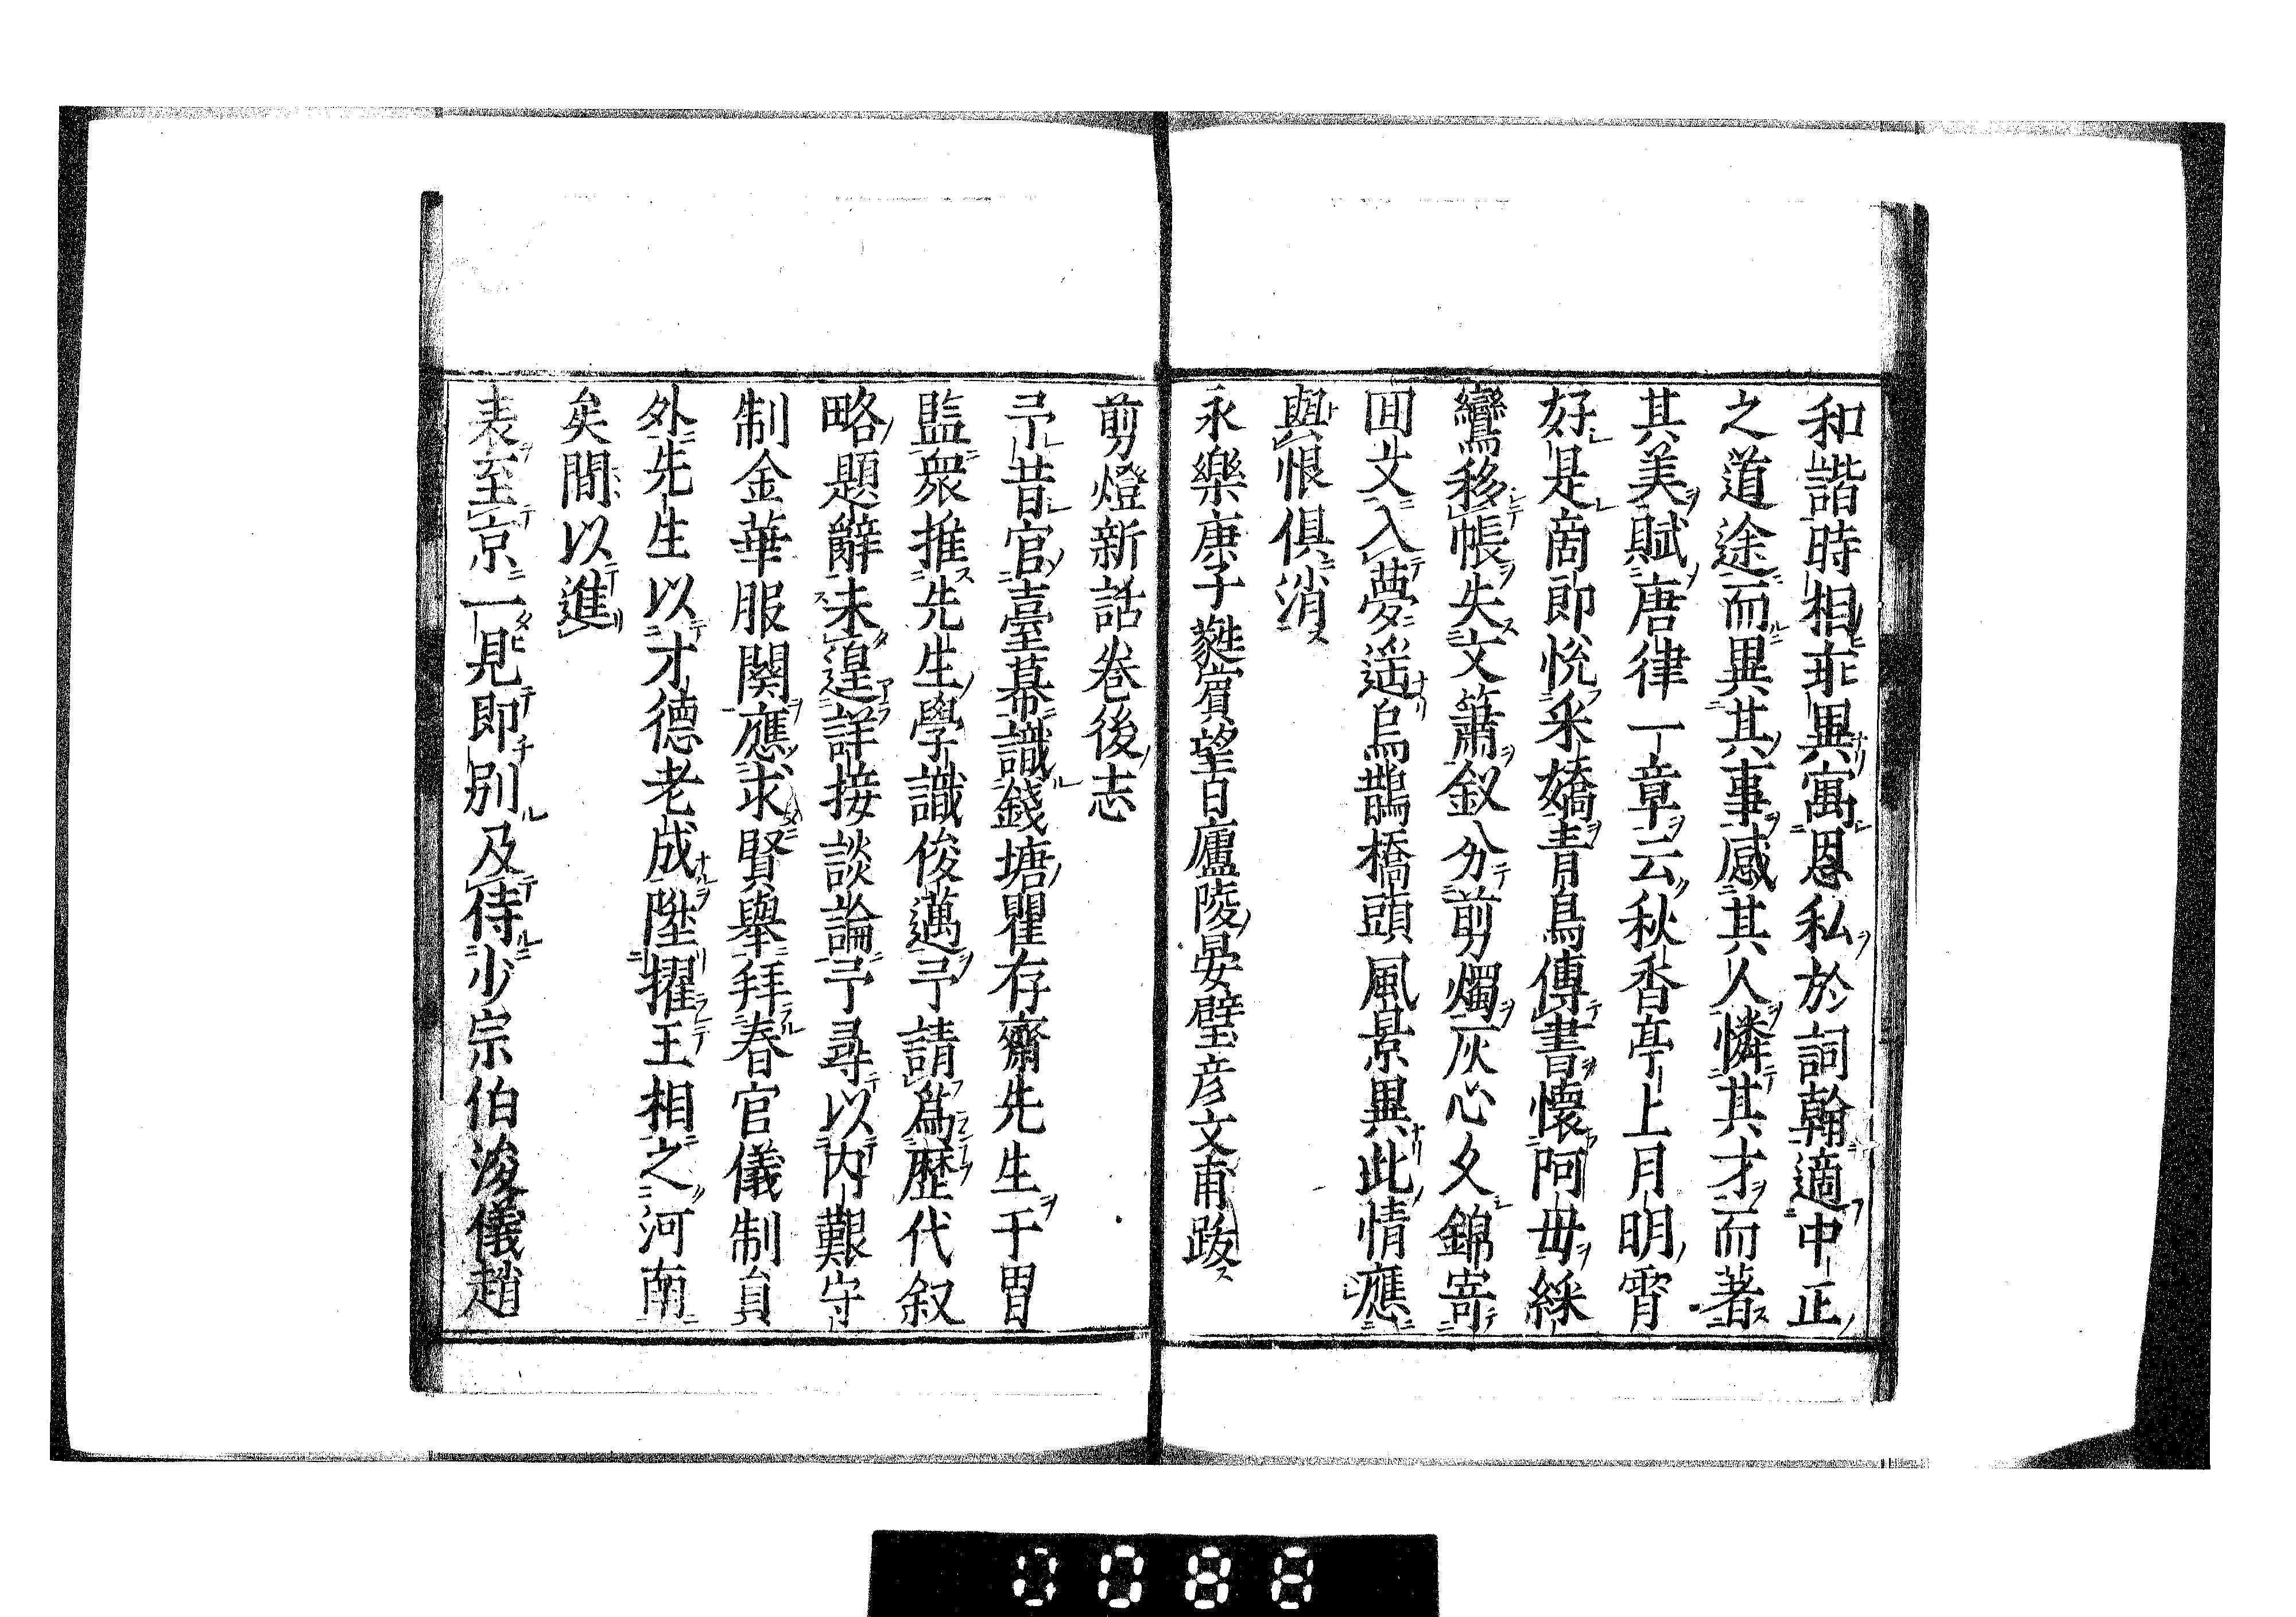 和諧時相乖異寓恩私於詞翰適中正
之道途而異其事感其人憐其才而著
其美賦唐律一章云秋香亭上月明霄
好是商郎悅采嬌青鳥傳書懷阿母綵
鸞移帳失文簫釵分剪燭灰心久錦寄
回文入夢遥烏鵲橋頭風景異此情應
與恨俱消
永樂庚子蕤賓望日廬陵晏璧彦文甫跋
剪燈新話卷後志
予昔官臺幕識錢塘瞿存齋先生于胄
監衆推先生學識俊邁予請爲歴代叙
略題辭未遑詳接談論予尋以内艱守
制金華服闋應求賢舉拜春官儀制員
外先生以才德老成陞擢王相之河南
矣間以進
表至京一見即别及侍少宗伯浚儀趙
0088